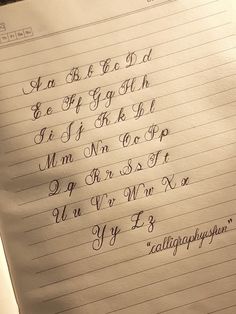 Aa Bb Cc Dd
Ee Ff Gg Hh
Ii Jj Kk Ll
Mm Nn Oo Pp
Qq Rr Ss Tt
Uu Vv Ww Xx
Yy Zz
"calligraphyisfun"